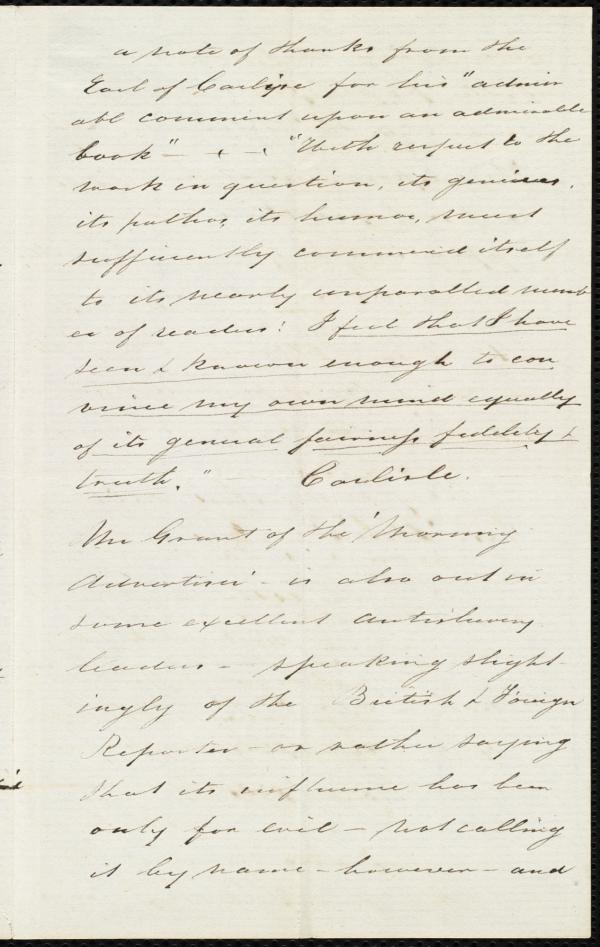 a note of thanks from the
Earl of Carlisle for his "admir
abl comment upon an admirable
book" - + - "With respect to the
work in question, its genius,
its pathos, its humor, must
sufficiently commend itself
to its nearly unparalled numb
er of readers! I feel that I have
seen & known enough to con
vince my own mind equally
of its general fairness, fidelity &
truth." Carlisle.
Mr Grant of the 'Morning
Advertiser' - is also out in
some excellent antislavery
leaders - speaking slight-
ingly of the British & Foreign
Reporter - or rather saying
that its influence has been
only for evil - not calling
it by name - however - and